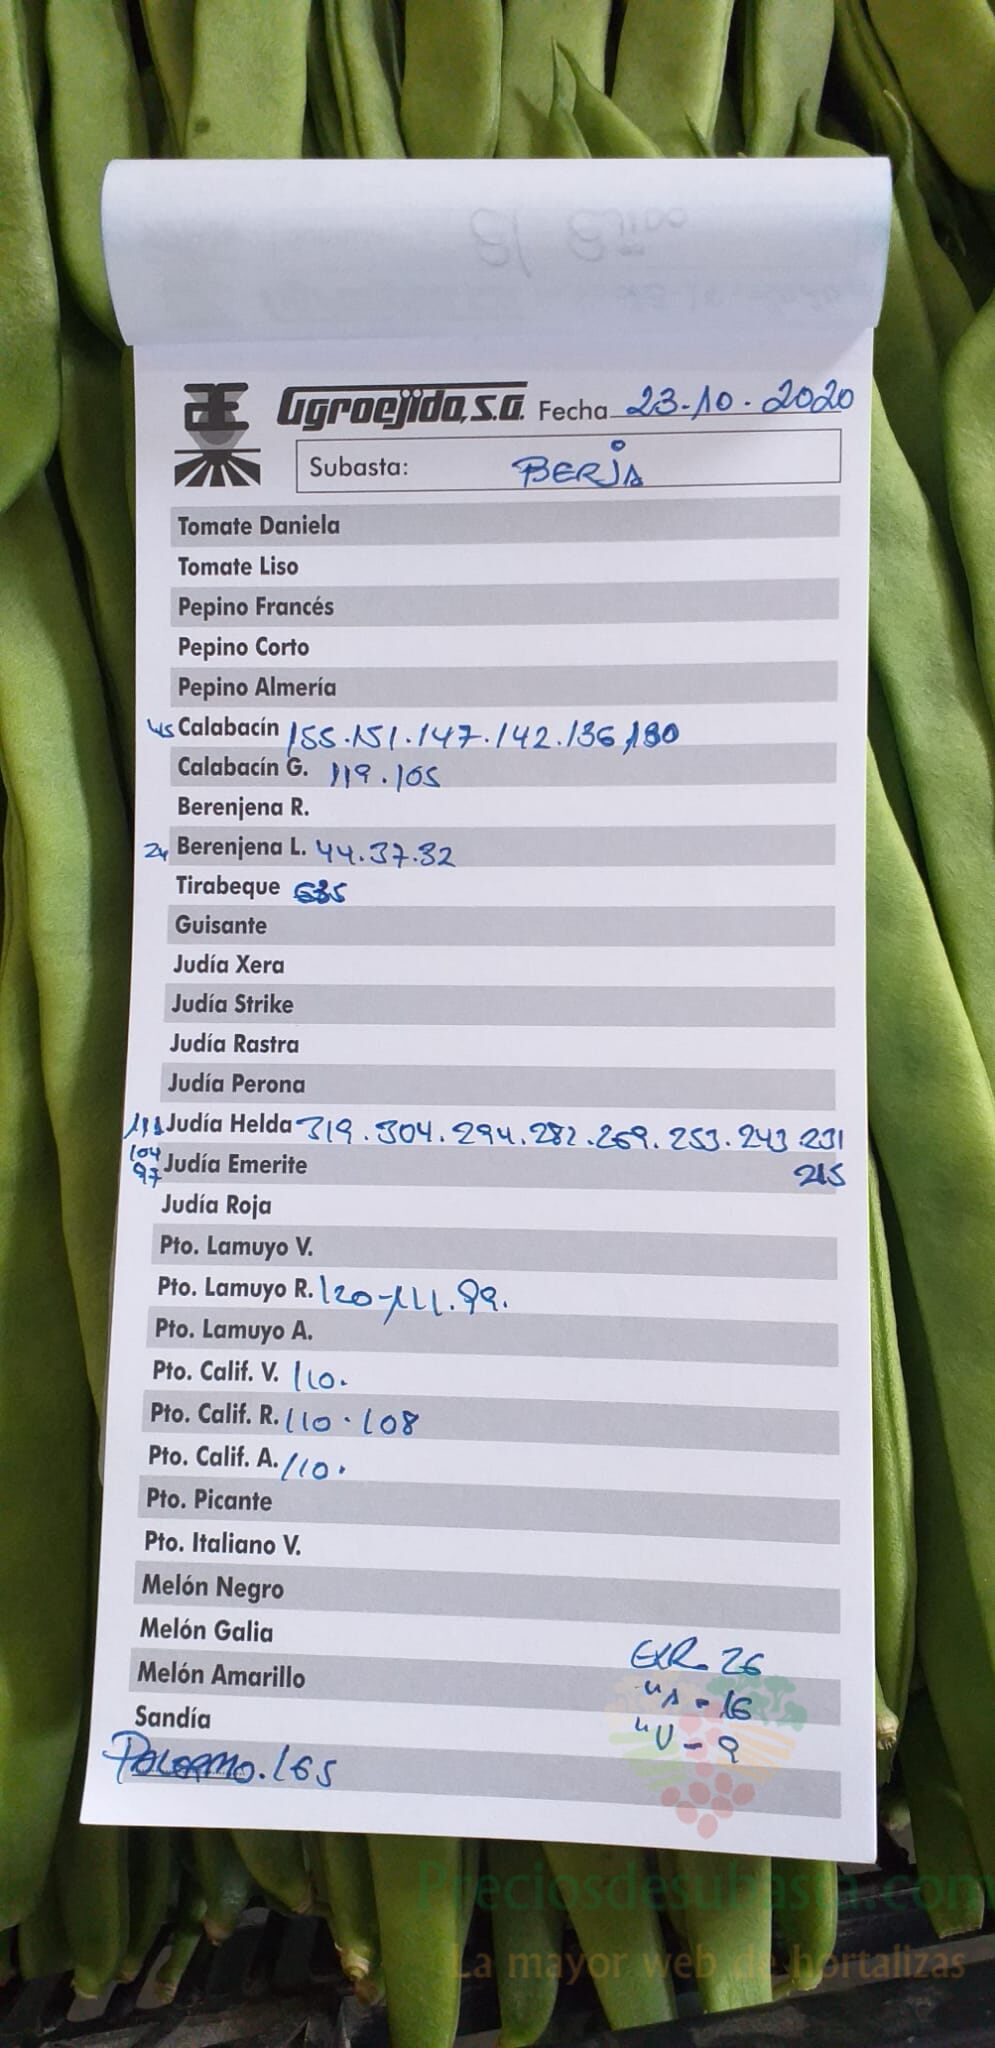 El Ejido
Agroejido, S.A. Fecha 23-10-2020
Subasta: BERJA
Tomate Daniela
Tomate Liso
Pepino Francés
Pepino Corto
Pepino Almería
45 Calabacín 155.151.147.142.136.130
Calabacín G. 119.105
Berenjena R.
24 Berenjena L. 44.37.32
Tirabeque
Guisante
Judía Xera
Judía Strike
Judía Rastra
Judía Perona
Judía Helda 319.304.294.282.269.253.243.231
104
97 Judía Emerite 215
Judía Roja
Pto. Lamuyo V.
Pto. Lamuyo R. 120-111.99.
Pto. Lamuyo A.
Pto. Calif. V. 110.
Pto. Calif. R. 110.108
Pto. Calif. A. 110.
Pto. Picante
Pto. Italiano V.
Melón Negro
Melón Galia
EXR 26
Melón Amarillo
"A - 16
Sandía
"V - 9
PALERMO. 165
Preciosdesubasta.com
La mayor web de hortalizas